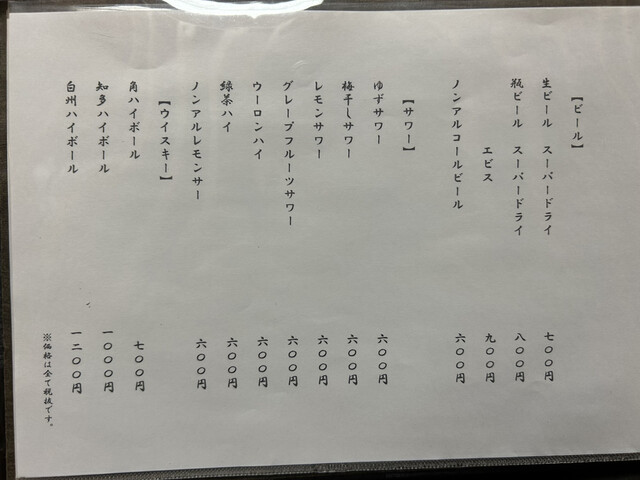 【ビール】
生ビール　スーパードライ　七〇〇円
瓶ビール　スーパードライ　八〇〇円
エビス　九〇〇円
ノンアルコールビール　六〇〇円
【サワー】
ゆずサワー　六〇〇円
梅干しサワー　六〇〇円
レモンサワー　六〇〇円
グレープフルーツサワー　六〇〇円
ウーロンハイ　六〇〇円
緑茶ハイ　六〇〇円
ノンアルレモンサー　六〇〇円
【ウイスキー】
角ハイボール　七〇〇円
知多ハイボール　一〇〇〇円
白州ハイボール　一二〇〇円
※価格は全て税抜です。